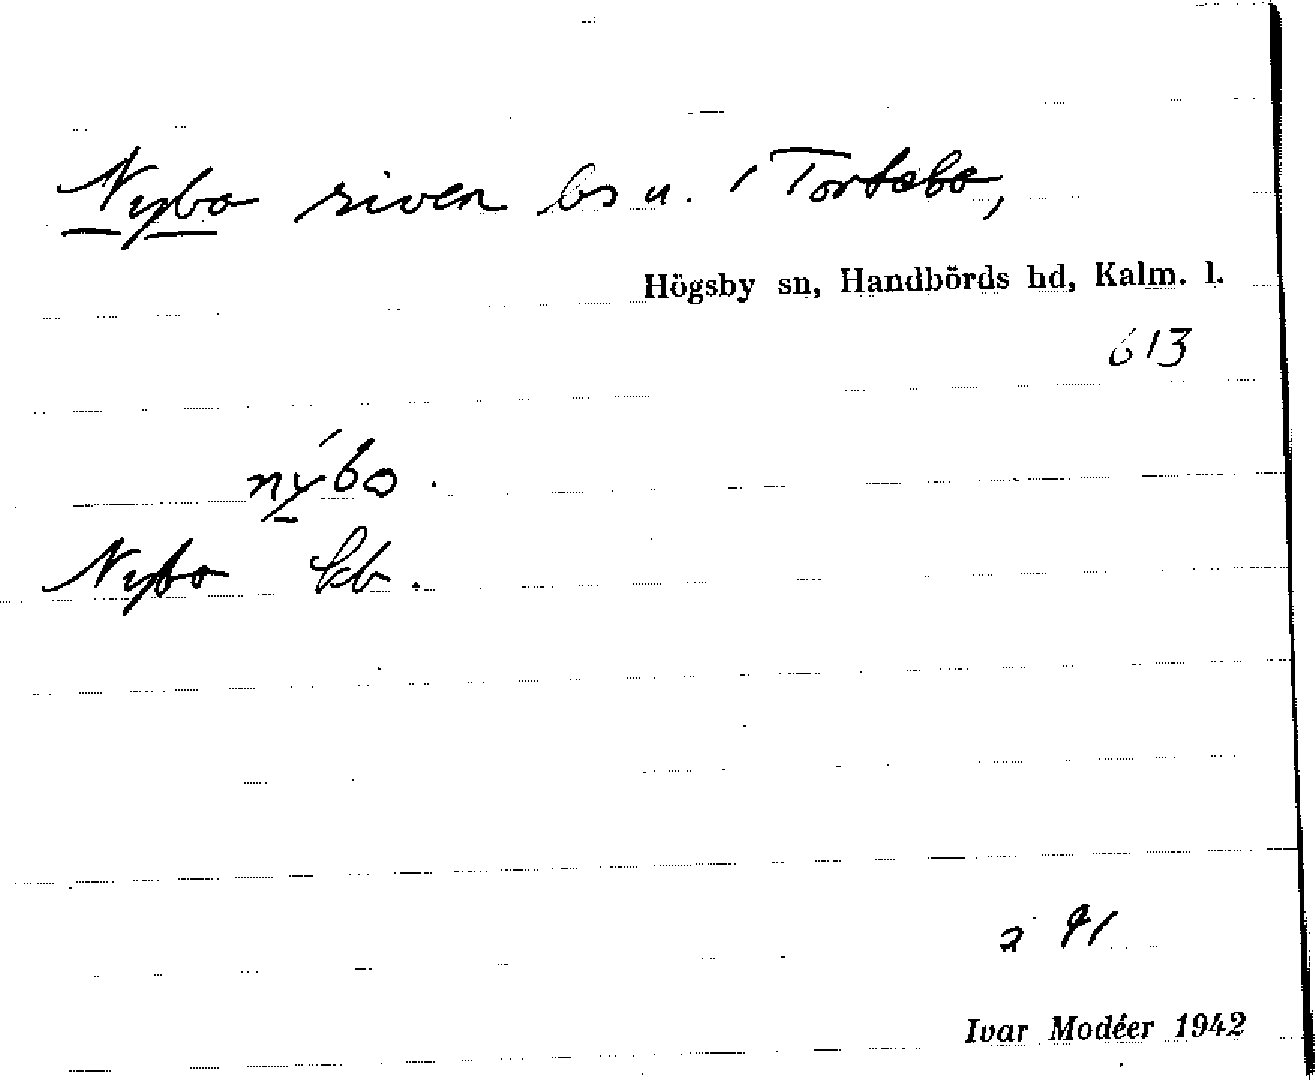 Nybo riven bs u. i Tortebo,
Högsby sn, Handbörds hd, Kalm. l.
613
nýbo.
Nybo kb.
Ivar Modéer 1942